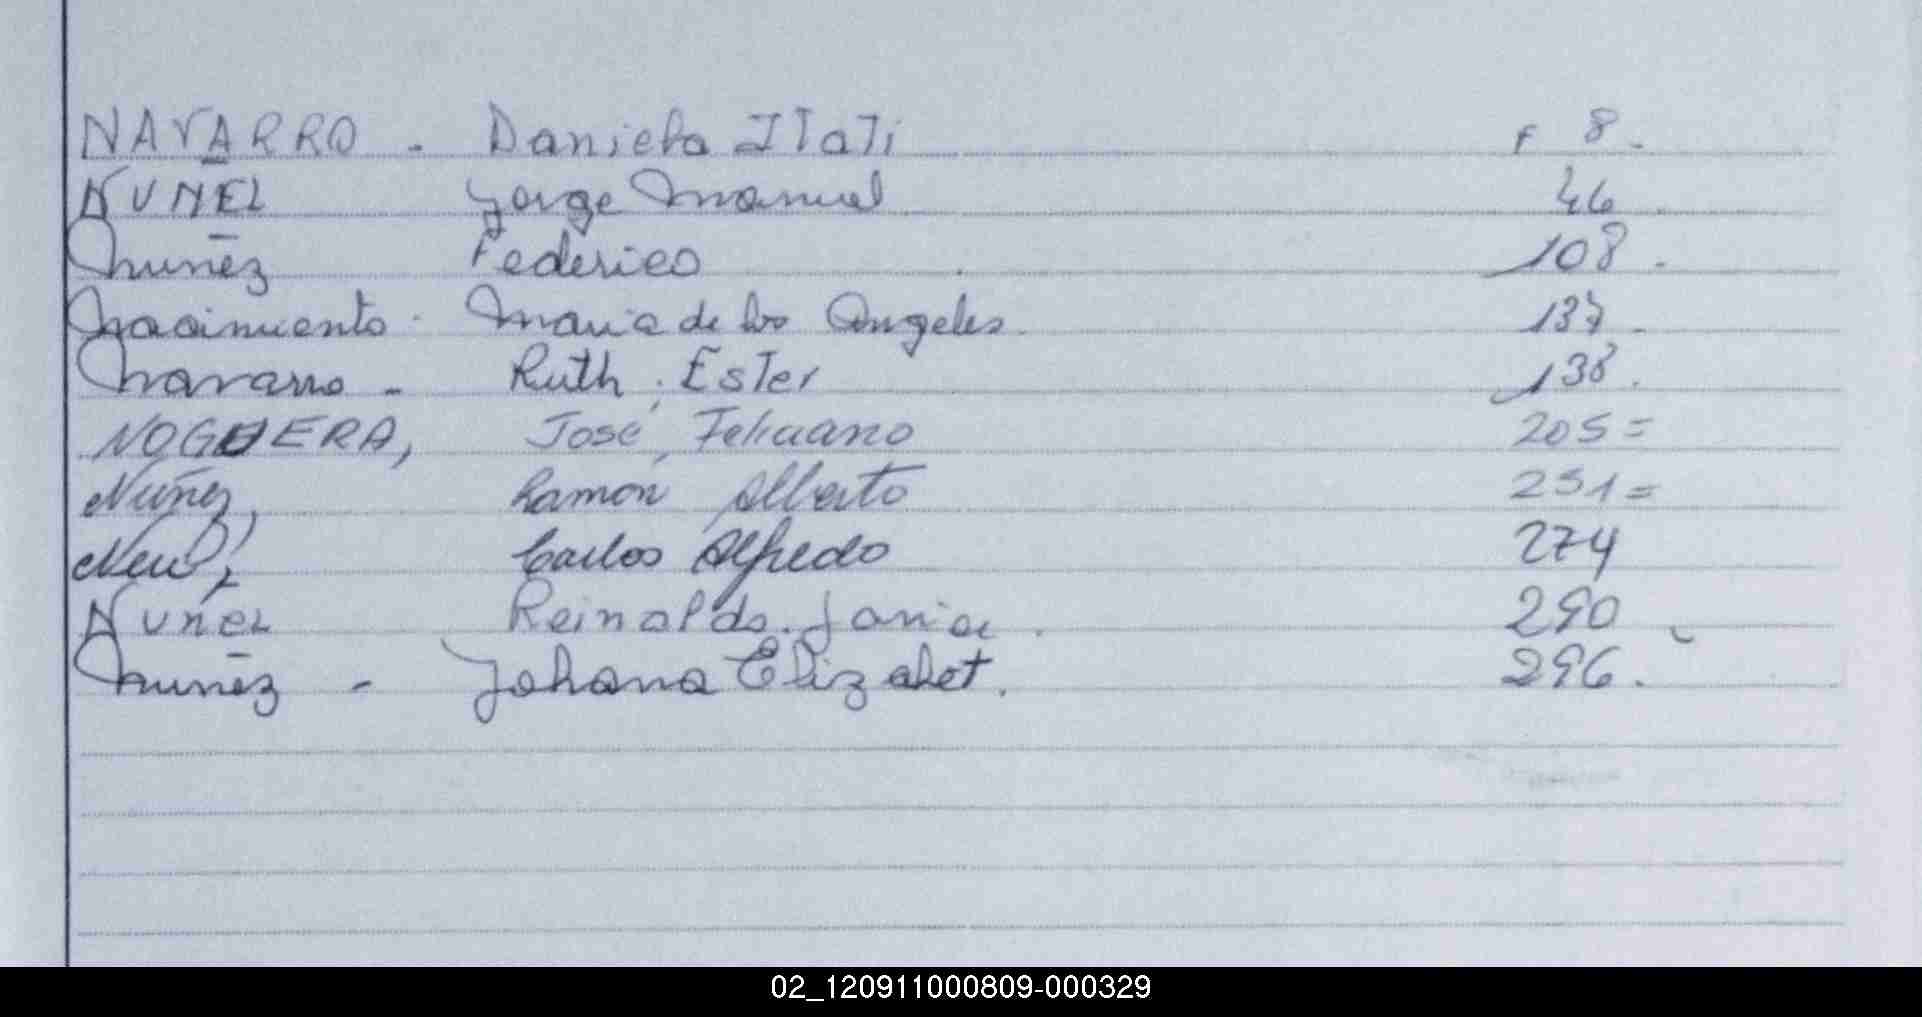 NAVARRO - Daniela ITaTi F 8.
NUÑEZ Jorge Manuel 46
Nuñez Federico 108.
Nacimiento - Maria de los Angeles. 137.
Navarro - Ruth, Ester 138.
NOGUERA, José, Feliciano 205=
Nuñez, Ramón Alberto 251=
Carlos Alfredo 274
Nuñez Reinaldo Javier. 290
Nuñez - Johana Elizabet. 296.
02_120911000809-000329